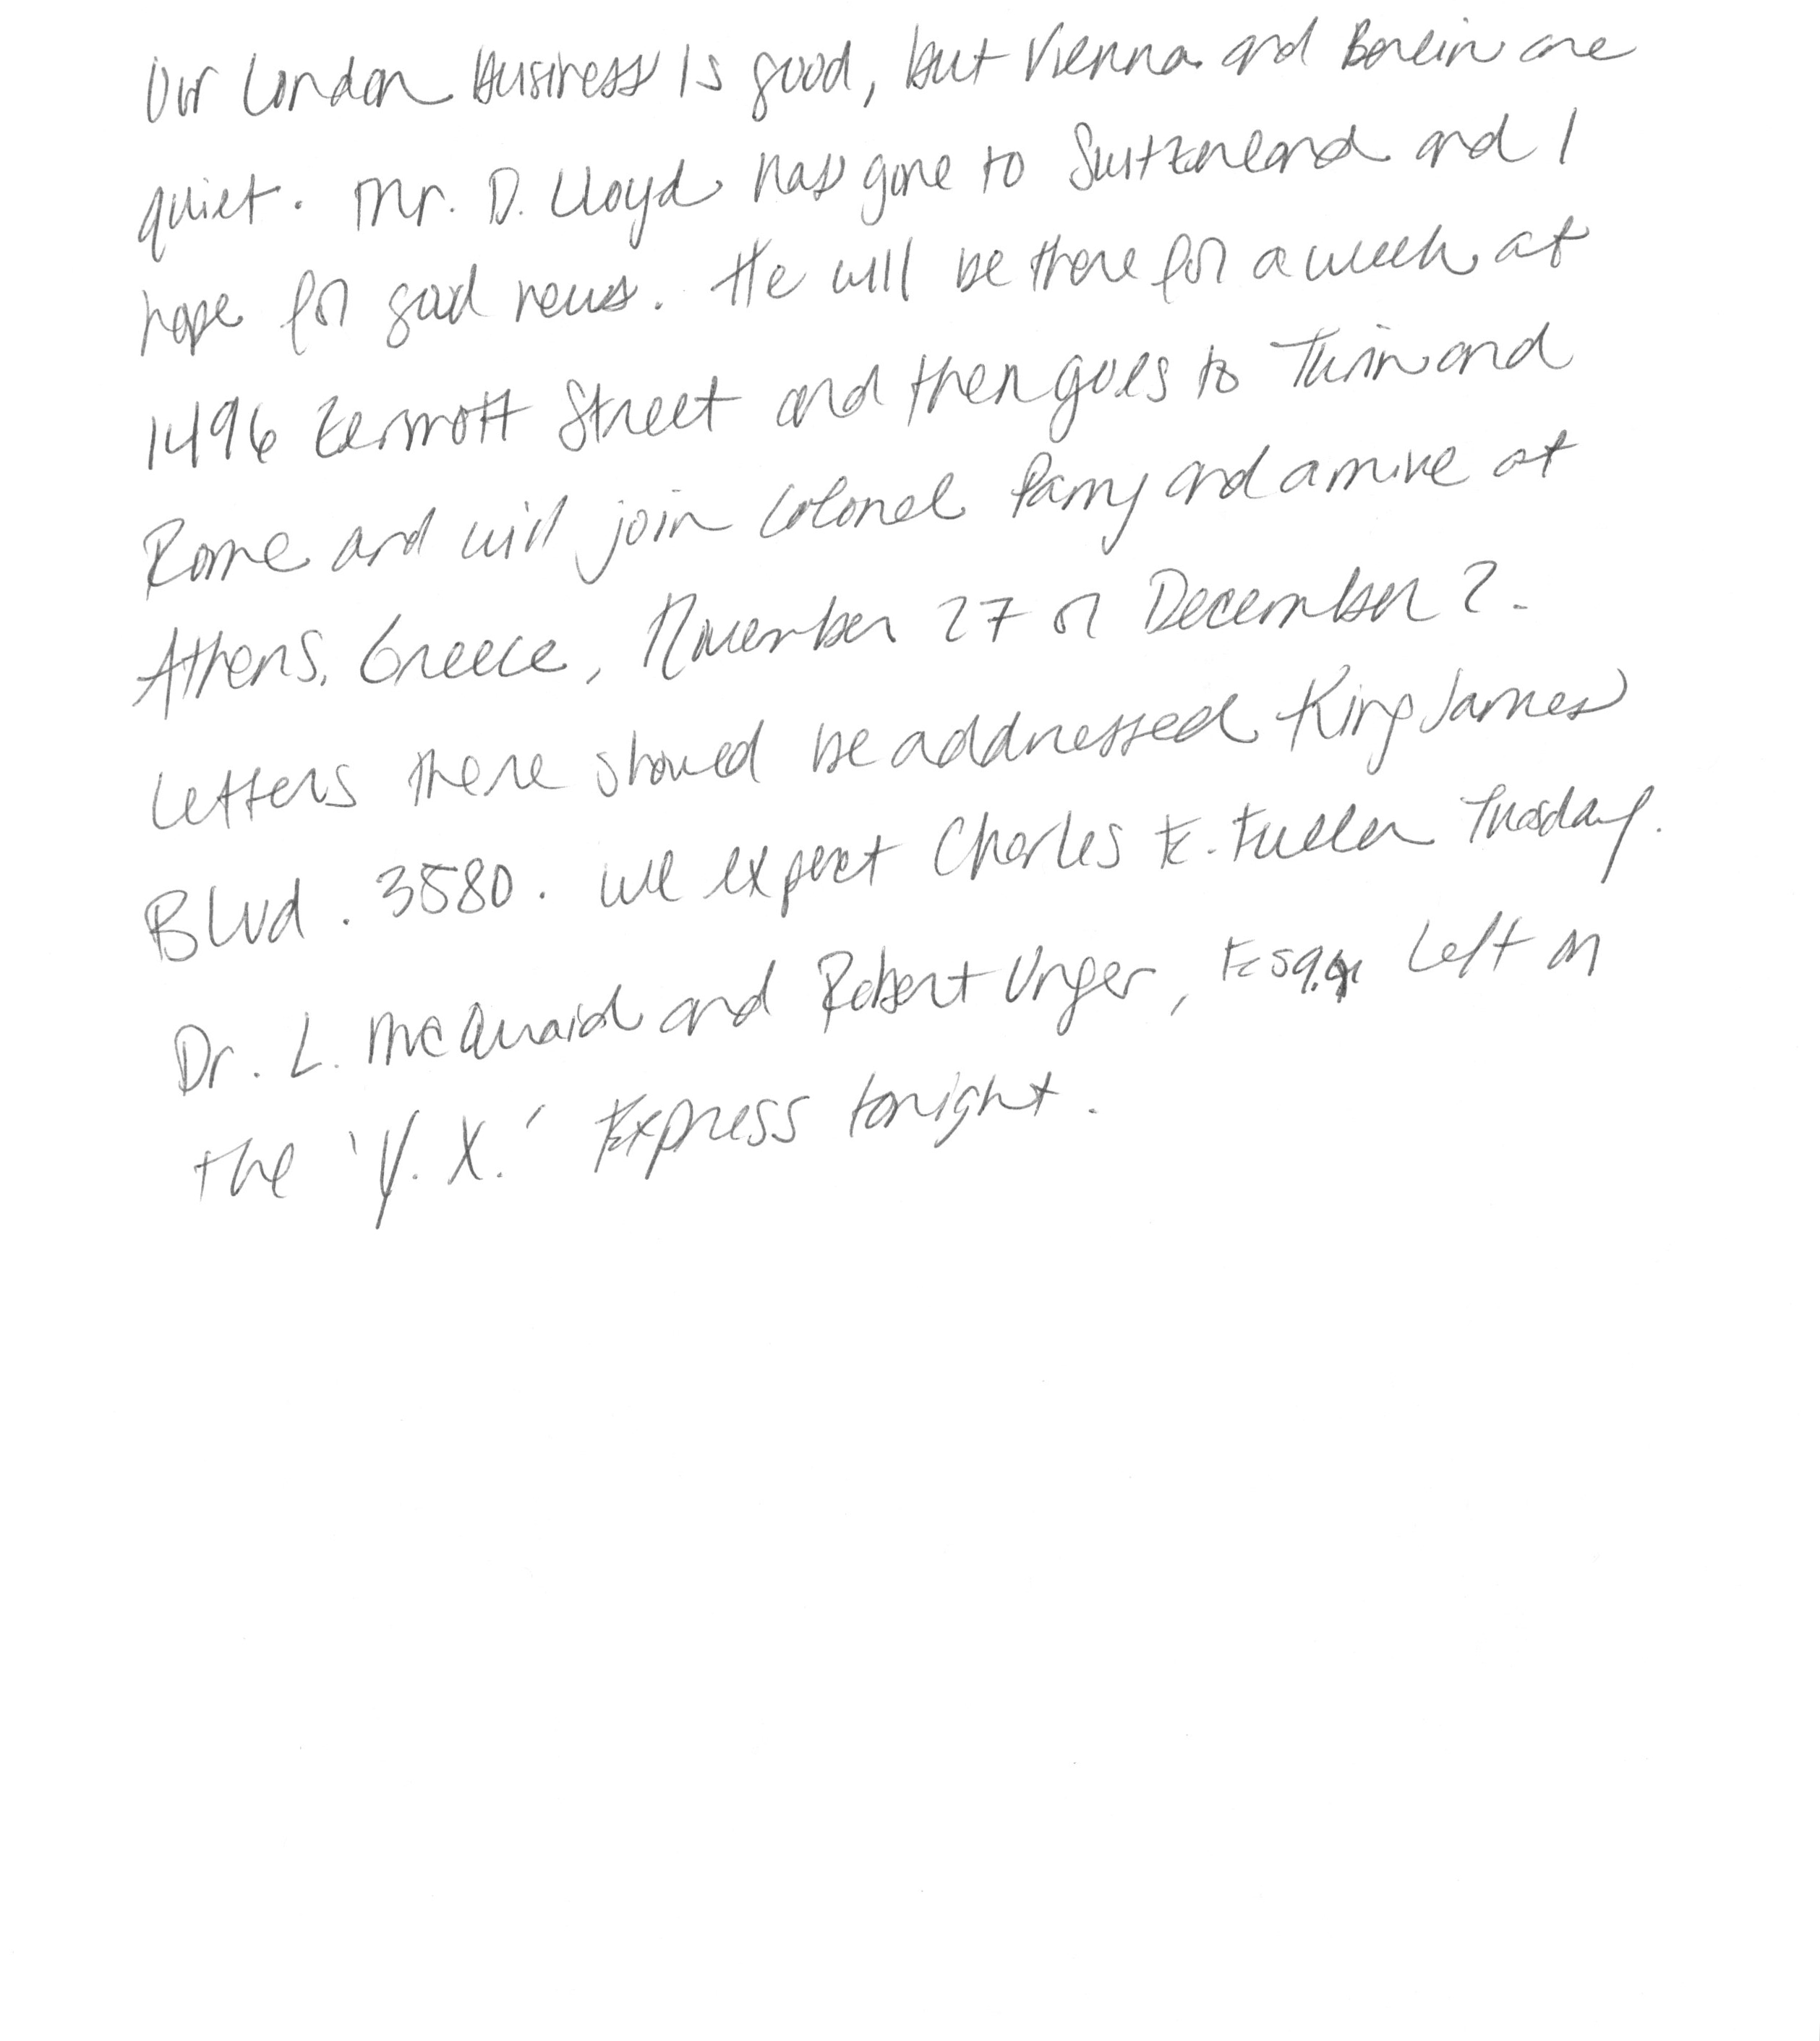 Our London business is good, but Vienna and Berlin are
quiet. Mr. D. Lloyd has gone to Switzerland and I
hope for good news. He will be there for a week at
1496 Zermott Street and then goes to Turin and
Rome and will join Colonel Parry and arrive at
Athens, Greece, November 27 or December 2.
Letters there should be addressed King James
Blvd. 3580. We expect Charles E. Fuller Tuesday.
Dr. L. McQuaid and Robert Unger, Esq., left on
the 'Y. X.' Express tonight.